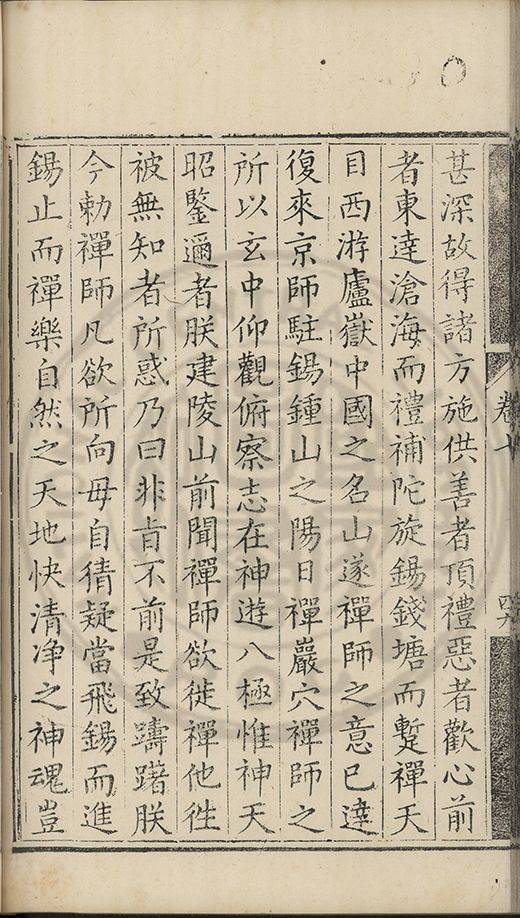 甚深故得諸方施供善者頂禮惡者歡心前
者東達滄海而禮補陀旋錫錢塘而蹔禪天
目西游廬嶽中國之名山遂禪師之意已達
復來京師駐錫鍾山之陽日禪巖穴禪師之
所以玄中仰觀俯察志在神遊八極惟神天
昭鑒邇者朕建陵山前聞禪師欲徙禪他徃
被無知者所惑乃曰非肯不前是致躊躇朕
今勅禪師凡欲所向毋自猜疑當飛錫而進
錫止而禪樂自然之天地快清净之神魂豈